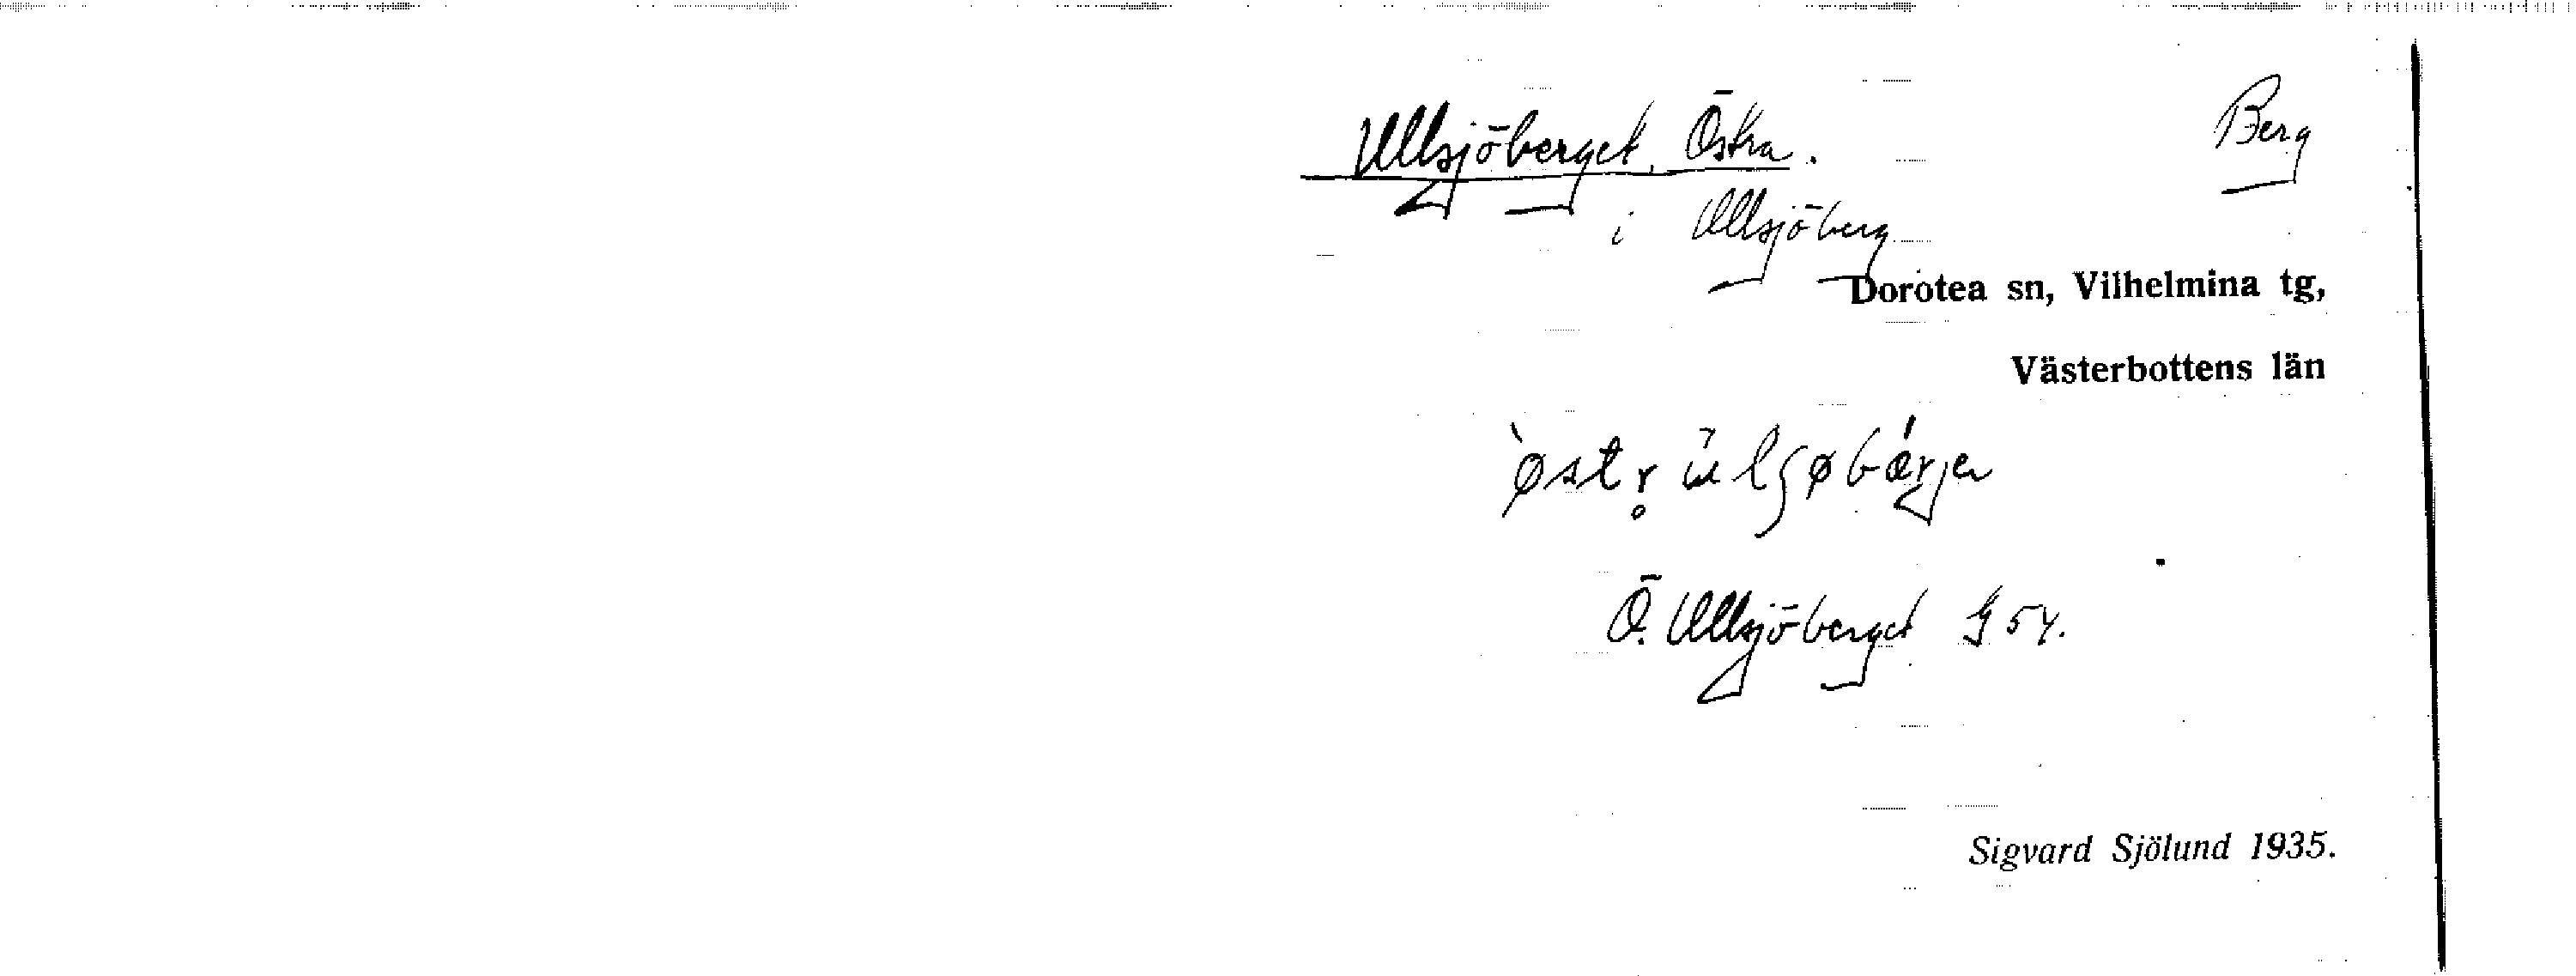 Ullsjöberget, Östra.
Berg
i Ullsjöberg
Dorotea sn, Vilhelmina tg,
Västerbottens län
Ö. Ullsjöberget G 54.
Sigvard Sjölund 1935.